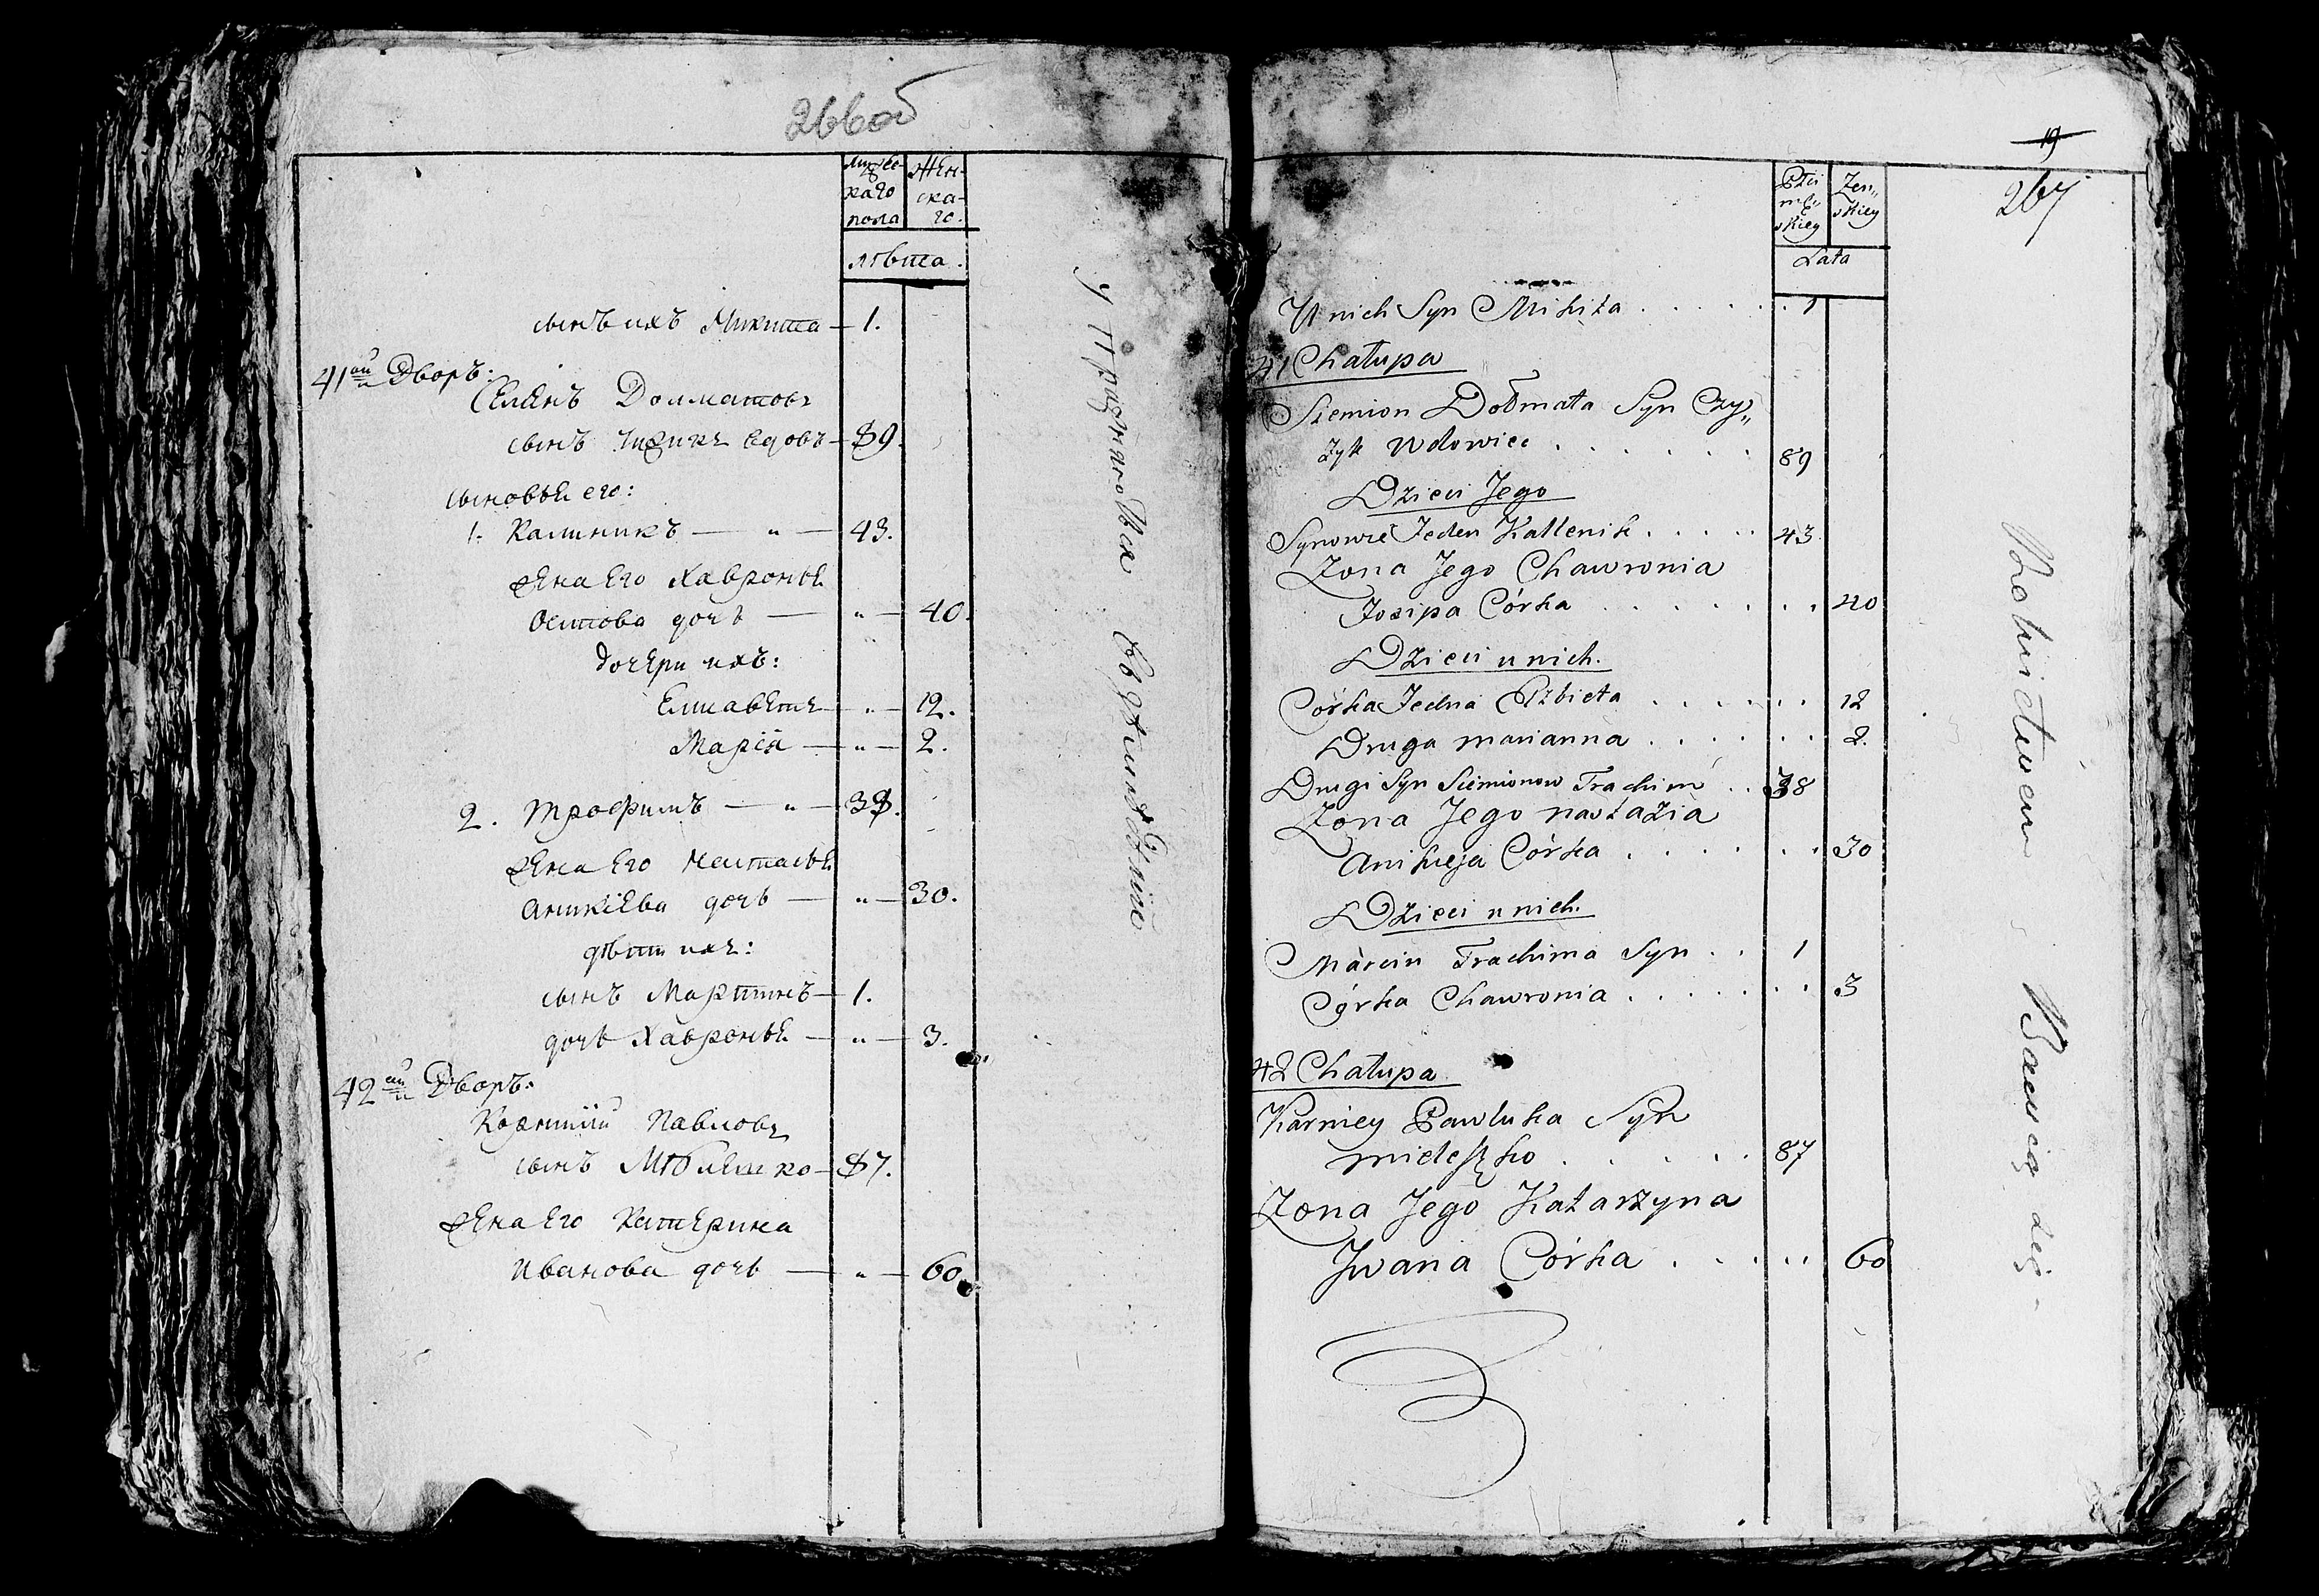 266об
Мужес-
каго
пола
Жен-
ска-
го.
лѣта.
сынъ ихъ Микита — 1.
41ый Дворъ:
Семенъ Долматовъ
сынъ Чижикъ вдовъ — 89.
сыновья его:
1. Калиникъ — " — 43.
жена его Хавронья
Осипова дочь — " — 40.
дочери ихъ:
Елисаветъ — " — 12.
Марія — " — 2.
2. Трофимъ — " — 38.
жена его Настасья
Аникіева дочь — " — 30.
дѣти ихъ:
сынъ Мартинъ — 1.
дочь Хавронья — " — 3.
42ый Дворъ:
Павловъ
сынъ Мѣлешко — 87.
жена его Катерина
Иванова дочь — " — 60.
19
267
Płci
mę„
skiey
Żen„
skiey
Lata
U nich Syn Mikita . . . . . . 1
41 Chałupa
Siemion Dołmata Syn Czy„
żyk Wdowiec . . . . . . 89
Dzieci Jego
Synowie Jeden Kallenik . . . . . 43.
Zona Jego Chawronia
Josipa Córka . . . . . . . 40
Dzieci u nich.
Córka Jedna Elżbieta . . . . . . 12
Druga marianna . . . . . . 2.
Drugi Syn Siemionow Trachim . . 38
Zona Jego nastazia
Anikieja Córka . . . . . . 30
Dzieci u nich.
Marcin Trachima Syn . . 1
Córka Chawronia . . . . . . . 3
42 Chałupa
Karniey Pawluka Syn
mieleszko . . . . . 87
Zona Jego Katarzyna
Jwana Córka . . . . . 60